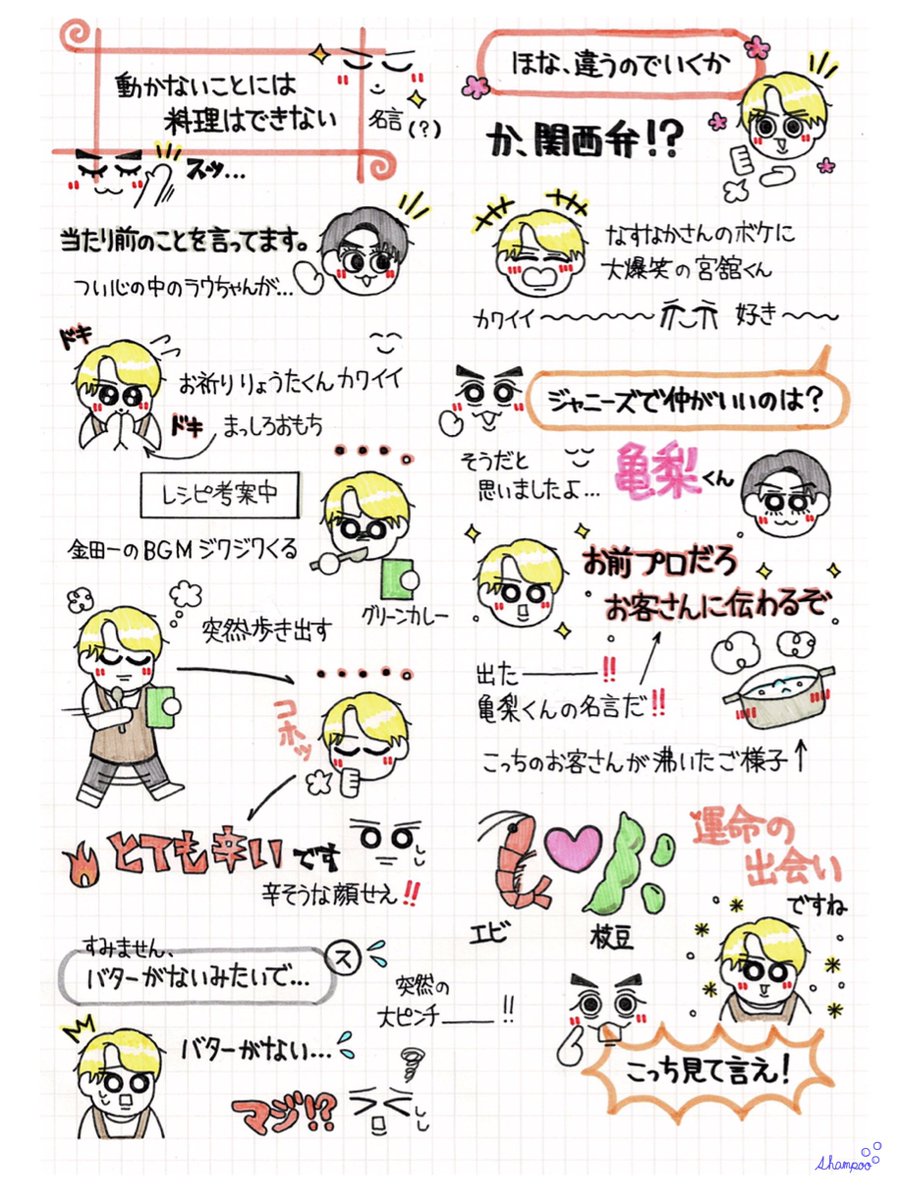 動かないことには
料理はできない
名言(?)
スッ...
当たり前のことを言ってます。
つい心の中のラウちゃんが...
ドキ
お祈りりょうたくんカワイイ
ドキ
まっしろおもち
レシピ考案中
金田一のBGMジワジワくる
グリーンカレー
突然歩き出す
コホッ
とても辛いです
辛そうな顔せえ!!
すみません、
バターがないみたいで...
ス
突然の
大ピンチ――!!
バターがない...
マジ!?
ほな、違うのでいくか
か、関西弁!?
なすなかさんのボケに
大爆笑の宮舘くん
カワイイ〜〜〜〜
好き〜〜
ジャニーズで仲がいいのは?
そうだと
思いましたよ...
亀梨くん
お前プロだろ
お客さんに伝わるぞ
出た――――!!
亀梨くんの名言だ!!
こっちのお客さんが沸いたご様子↑
エビ
枝豆
運命の
出会い
ですね
こっち見て言え!
Shampoo